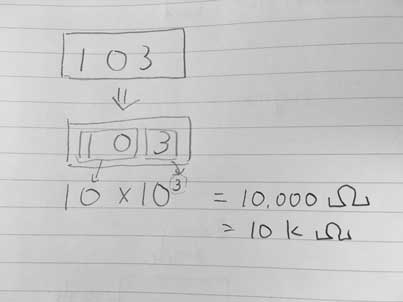 103
10 3
10 x 10³ = 10.000 Ω
= 10 k Ω